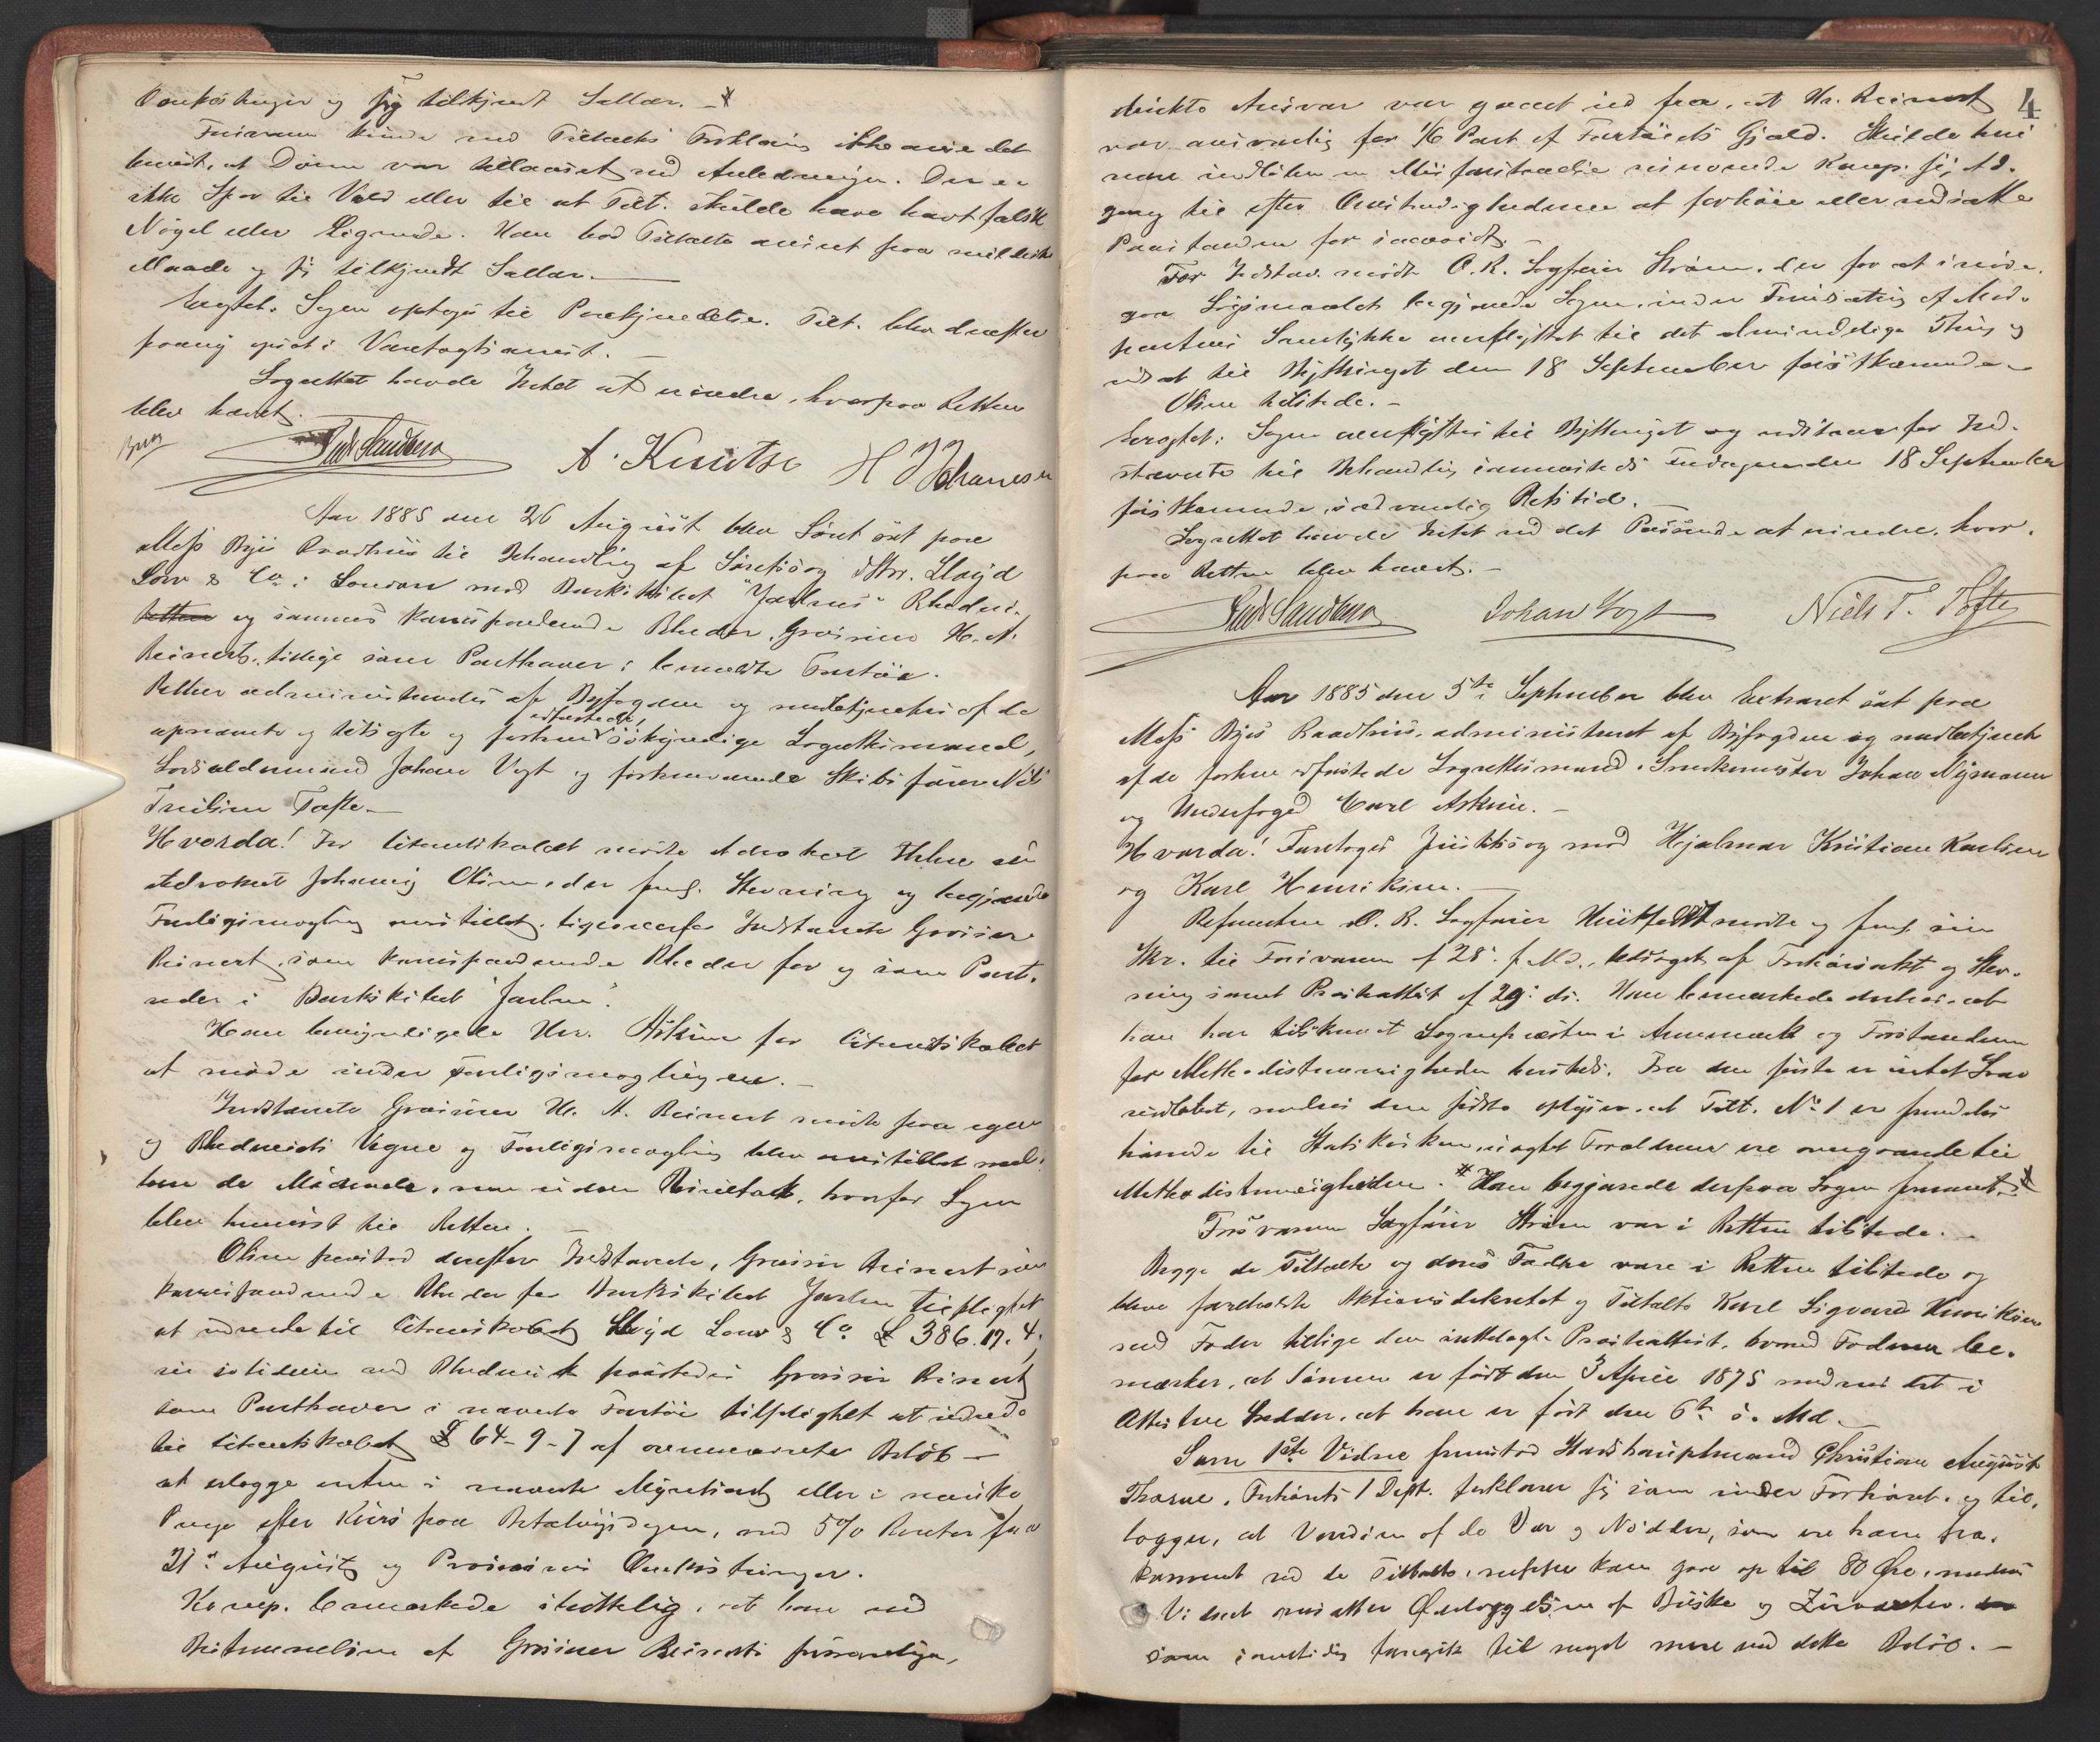 Omkostninger og sig tilkjendt Sallær. –
Forsvareren kunde ved Tiltaltes Forklaring ikke anse det
bevist, at Døren var tillaaset ved Anledningen. Der er
ikke Spor til Vold eller til at Tilt. skulde have havt falsk
Nøgel eller Lignende. Han bad Tiltalte anseet paa mildeste
Maade og sig tilkjendt Sallær. –
Eragtet: Sagen optages til Paakjendelse. Tilt. blev derefter
paany indsat i Varetægtsarrest. –
Lagrettet havde Intet at erindre, hvorpaa Retten
blev hævet.
A. Knutsen H Johannesen
Aar 1885 den 26 August blev Søret sat paa
Moss Byes Raadhus til Behandling af Søretssag Str. Lloyd
Low & Co. i London mod Barkskibet "Jarlen"s Rhederi
Retten og sammes korresponderende Rheder, Grosserer H. A.
Reinert, tillige som Parthaver i bemeldte Fartøi.
Retten administreredes af Byfogden og medbetjentes af de
opnævnte og tiltagte og forhen edfæstede, søkyndige Lagrettesmænd,
Lodsoldermand Johan Vogt og forhenværende Skibsfører Niels
Trulsen Tofte. –
Hvorda! For Citantskabet mødte Advokat
Advokat Johannes Olsen, der freml. Stevning og begjærede
Forligsmægling anstillet, ligeoverfor Indstævnte Grosserer
Reinert, som korresponderende Rheder for og som Part-
reder i Barkskibet "Jarlen".
Han bemyndigede Hr. Olsen for Citantskabet
at møde under Forligsmæglingen. –
Indstævnte Grosserer H. A. Reinert mødte paa egne
og Rhederiets Vegne og Forligsmægling blev anstillet mel-
lem de Mødende, men uden Resultat, hvorfor Sagen
blev henvist til Retten. –
Olsen paastod derefter Indstævnte, Grosserer Reinert som
korresponderende Rheder for Barkskibet Jarlen tilpligtet
at udrede til Citantskabet Lloyd Low & Co £ 386.17.4;
in solidum med Rhederiet paastodes Grosserer Reinert
som Parthaver i nævnte Fartøi tilpligtet at udrede
til Citantskabet £ 64-9-7 af ovennævnte Beløb –
at erlægge enten i nævnte Myntsort eller i norske
Penge efter Kurs paa Betalingsdagen, med 5% Renter fra
21de August og Processens Omkostninger.
Komp. bemærkede , at han ved
Bestemmelsen af Grosserer Reinerts personlige,
4
direkte Ansvar var gaaet ud fra, at Hr. Reinert
var ansvarlig for 1/6 Part af Fartøiets Gjæld. Skulde heri
være indløben en Misforstaaelse reserverede Komp. sig Ad-
gang til efter Omstændighederne at forhøie eller nedsætte
Paastanden for saavidt. –
For Indstæv. mødte O. R. Sagfører Strøm, der for at imøde-
gaa Søgsmaalet begjærede Sagen, under Forudsætning af Mod-
partens Samtykke overflyttet til det almindelige Thing og
udsat til Bythinget den 18 September førstkommende. –
Olsen tilstede. –
Eragtet: Sagen overflyttes til Bythinget og udstaaer for Ind-
stævnte til Behandling sammesteds Fredagen den 18 September
førstkommende, sædvanlig Retstid. –
Lagrettet havde Intet ved det Passerede at erindre, hvor-
paa Retten blev hævet. –
Johan Vogt Niels T. Tofte
Aar 1885 den 5te September blev Extraret sat paa
Moss Byes Raadhus, administreret af Byfogden og medbetjent
af de forhen edfæstede Lagrettesmænd, Snedkermester Johan Nyman
og Underfoged Carl Askim. –
Hvorda! Foretoges Justitssag mod Hjalmar Kristian Karlsen
og Karl Henriksen. –
Referenten O. R. Sagfører mødte og freml. sin
Skr. til Forsvareren af 28. f. Md., ledsaget af Forhørsakt og Stev-
ning samt Præsteattest af 29. ds. Han bemærkede derhos, at
han har tilskrevet Sognepræsten i Annemark og Forstanderen
for Methodistmenigheden hersteds. Fra den første er intet Svar
indløbet, medens den sidste oplyser, at Tilt. No 1 er fremdeles
hørende til Statskirken, uagtet Forældrene ere overgaaede til
Methodistmenigheden. * Han begjærede derpaa Sagen fremmet. *
Forsvareren Sagfører Strøm var i Retten tilstede. –
Begge de Tiltalte og deres Fædre vare i Retten tilstede og
blev foreholdt Aktionsdekretet og Tiltalte Karl Sigvard Henriksen
med Fader tillige den indtagte Præsteattest, hvorved Faderen be-
mærker, at Sønnen er født den 3 April 1875 medens det i
Attesten hedder, at han er født den 6te s. Md. –
Som 1ste Vidne fremstod Stadshauptmand Christian August
Thorne, Forhørets 1 Dept. forklarer sig som under Forhøret, og til-
lægger, at Værdien af de Vær og Nødder, som ere ham fra-
kommet ved de Tiltalte, neppe kan gaa op til 80 Øre, medens
Vidnet ansætter Ødelæggelsen af Buske og
som samtidig foregik til noget mere end dette Beløb. –